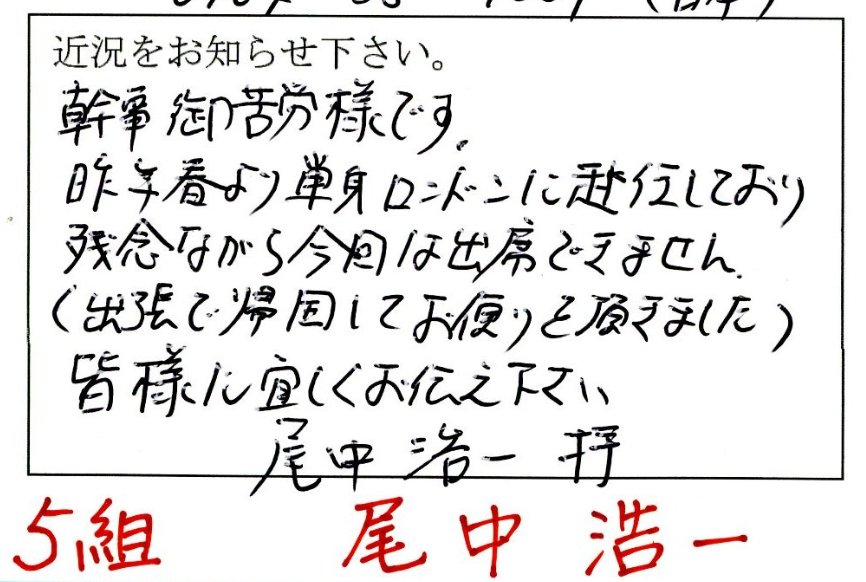 近況をお知らせ下さい。
幹事御苦労様です。
昨年春より単身ロンドンに赴任しており
残念ながら今回は出席できません。
(出張で帰国してお便りを頂きました)
皆様に宜しくお伝え下さい
尾中浩一 拝
5組 尾中浩一